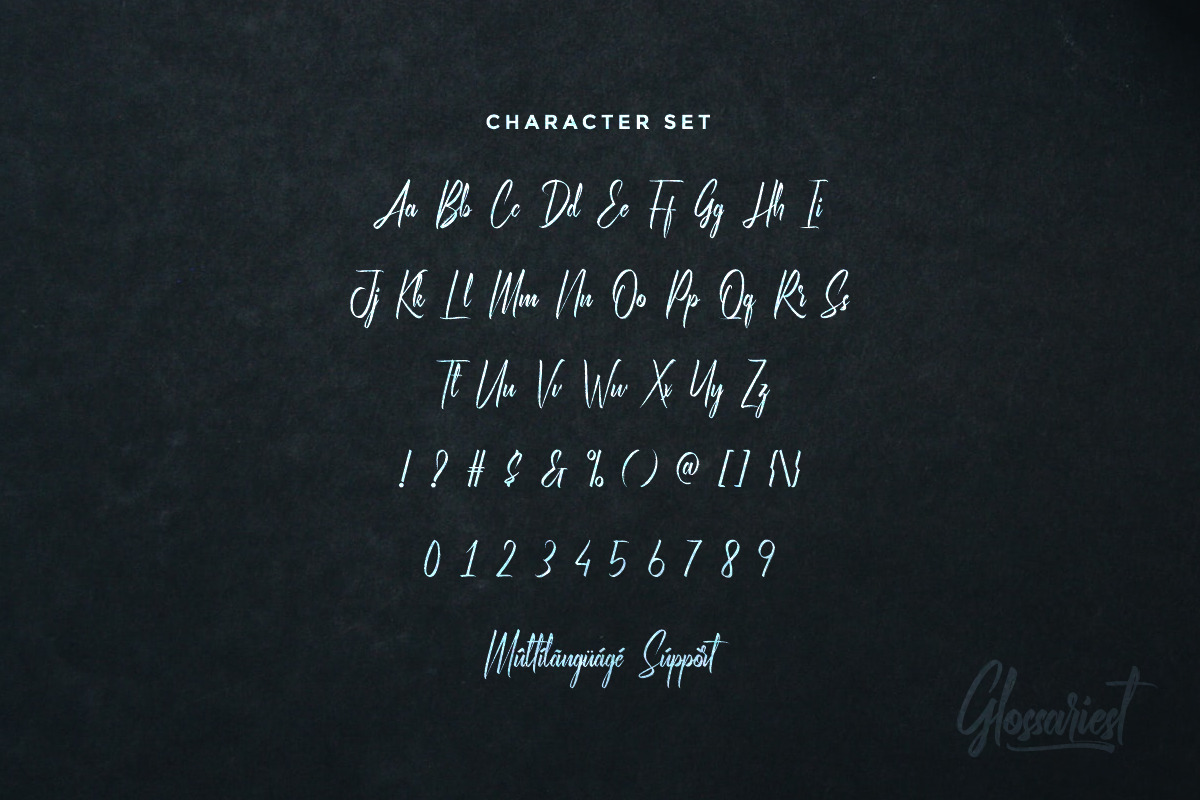 CHARACTER SET
Aa Bb Cc Dd Ee Ff Gg Hh Ii
Jj Kk Ll Mm Nn Oo Pp Qq Rr Ss
Tt Uu Vv Ww Xx Yy Zz
! ? # $ & % ( ) @ [ ] { \ }
0 1 2 3 4 5 6 7 8 9
Múltílãngüágé Súppőrt
Glossariest